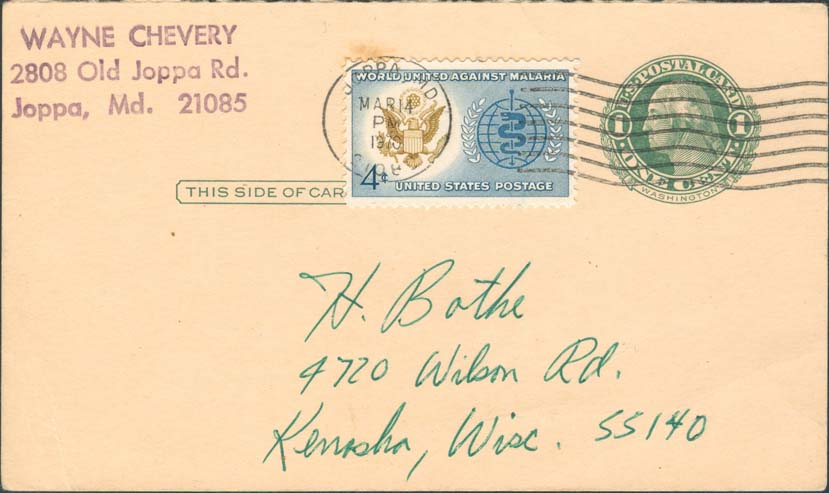 WAYNE CHEVERY
2808 Old Joppa Rd.
Joppa, Md. 21085
JOPPA MD
MAR 14
PM
1973
WORLD UNITED AGAINST MALARIA
4¢
UNITED STATES POSTAGE
U.S. POSTAL CARD
1 1
ONE CENT
WASHINGTON
THIS SIDE OF CAR
H. Bothe
4720 Wilson Rd.
Kenosha, Wisc. 55140